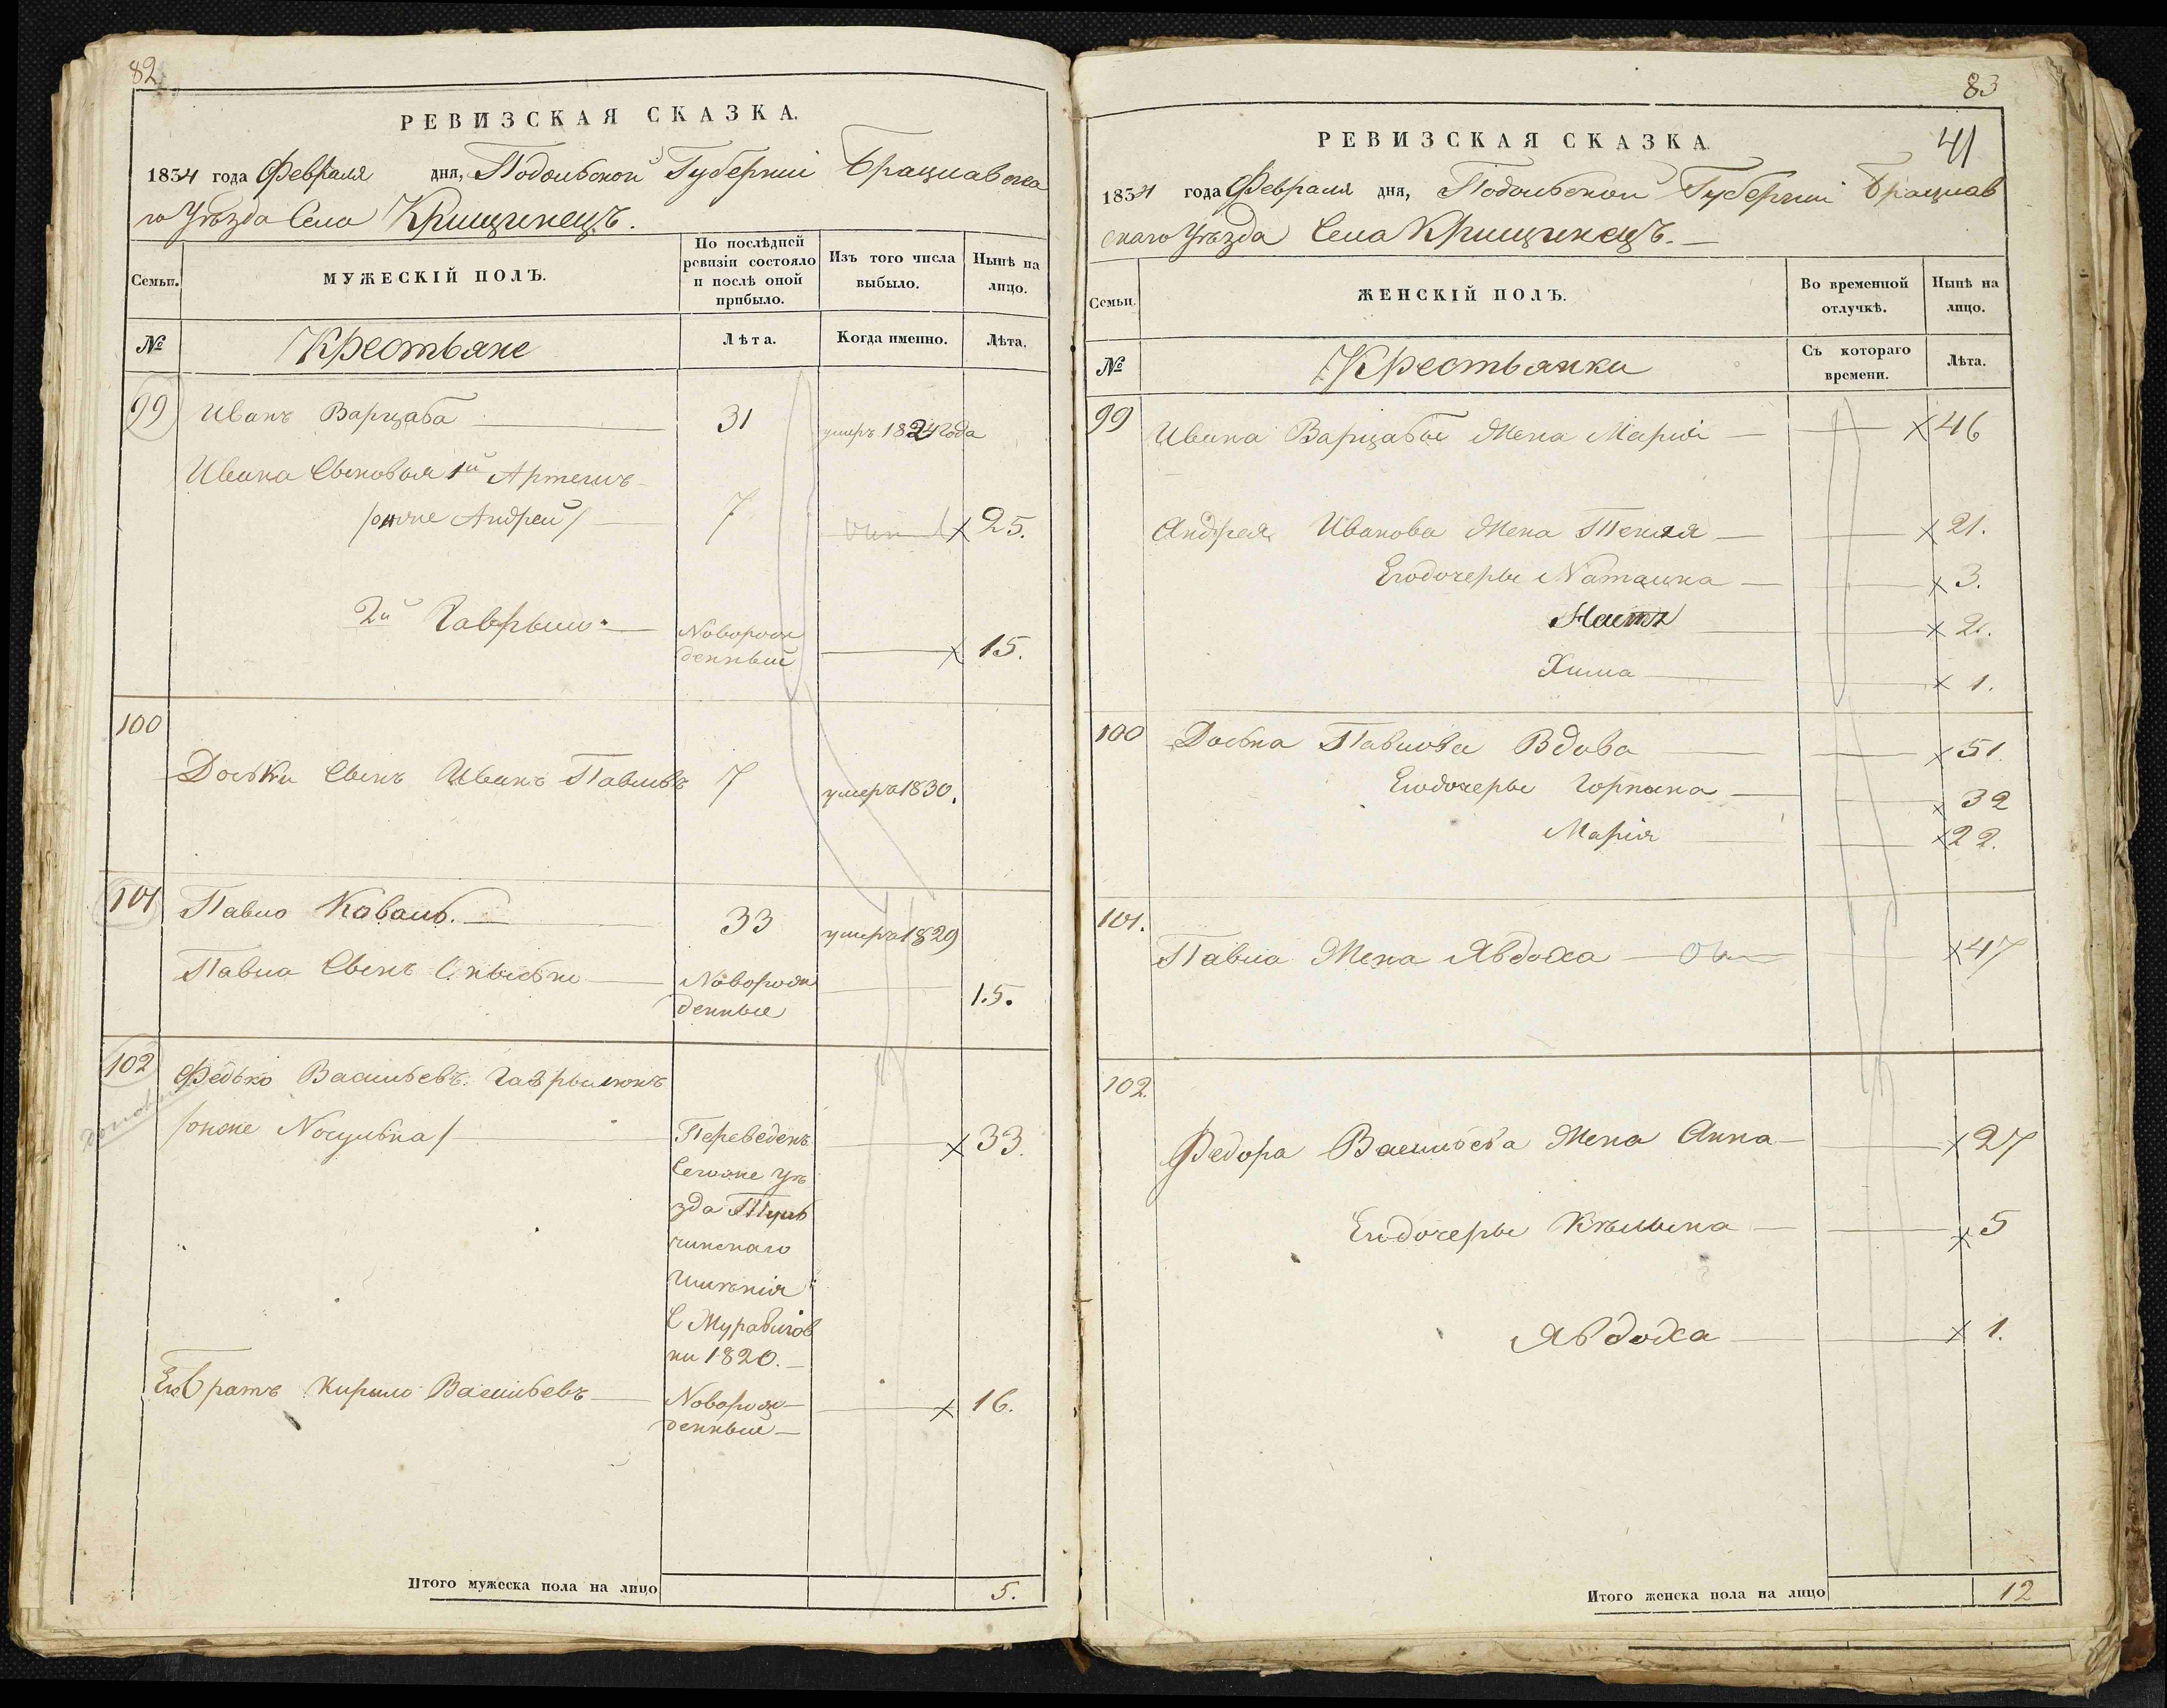 82
РЕВИЗСКАЯ СКАЗКА.
1834 года Февраля дня, Подольской Губерніи Брацлавска
го Уѣзда Села Крищинецъ.
Семьи.
МУЖЕСКІЙ ПОЛЪ.
По послѣдней ревизіи состояло и послѣ оной прибыло.
Изъ того числа выбыло.
Нынѣ на лицо.
№
Крестьяне
Лѣта.
Когда именно.
Лѣта.
99 Иванъ Варцаба 31 умеръ 1824 года
Ивана Сыновья 1й Артемъ
/онже Андрей/ 7 25.
2й Гаврыло Новорож
денный 15.
100
Доськи Сынъ Иванъ Павловъ 7 умеръ 1830.
101 Павло Коваль. 33 умеръ 1829
Павла Сынъ Новорож
денные 15.
102 Федько Васильевъ Гаврылюкъ
/онже Носулька/ Переведенъ 33.
Сегоже Уѣ
зда Туль
чинскаго
Имѣнія
С Муравіов
ки 1820.
Его Братъ Кирыло Васильевъ Новорож
денные 16.
Итого мужеска пола на лицо 5.
83
41
РЕВИЗСКАЯ СКАЗКА.
1834 года Февраля дня, Подольской Губерніи Брацлав
скаго Уѣзда Села Крищинецъ.
Семьи.
ЖЕНСКІЙ ПОЛЪ.
Во временной отлучкѣ.
Нынѣ на лицо.
№
Крестьянки
Съ котораго времени.
Лѣта.
99 Ивана Варцабы Жена Марія 46
Андрея Иванова Жена Текля 21.
Егодочеры Наташка 3.
Настя 2.
Хима 1.
100 Доська Павлова Вдова 51.
Егодочеры Горпына 32
Марія 22.
101. Павла Жена Явдоха 47
102.
Федора Васильева Жена Анна 27
Егодочеры Кылына 5
Явдоха 1.
Итого женска пола на лицо 12